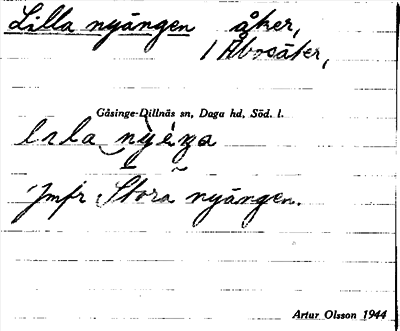 Lilla nyängen åker,
/ Åbosäter,
Gåsinge-Dillnäs sn, Daga hd, Söd. l.
Jmfr Stora nyängen.
Artur Olsson 1944